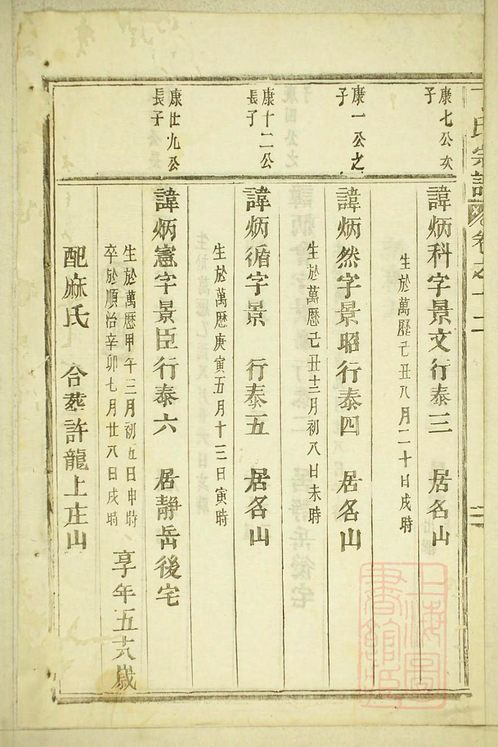 氏宗譜卷之十二
康七公次子
諱炳科字景文行泰三 居名山
生於萬歷己丑八月二十日戌時
康一公之子
諱炳然字景昭行泰四 居名山
生於萬歷己丑十二月初八日未時
康十二公長子
諱炳循字景 行泰五 居名山
生於萬歷庚寅五月十三日寅時
康廿九公長子
諱炳憲字景臣行泰六 居靜岳後宅
生於萬歷甲午三月初五日申時
卒於順治辛卯七月廿八日戌時
享年五十八歲
配麻氏 合葬許龍上庄山
上海圖書館藏